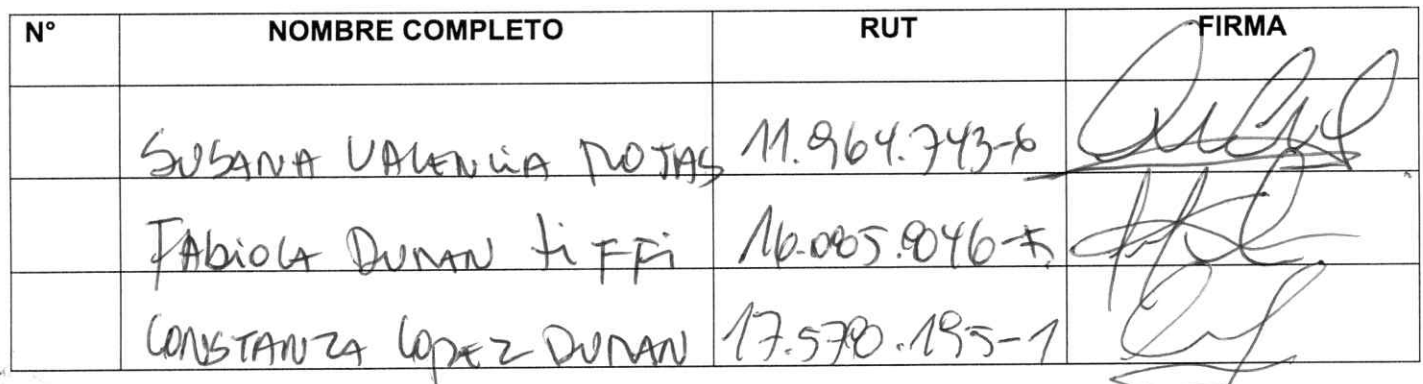 N° NOMBRE COMPLETO RUT FIRMA
SUSANA VALENCIA ROJAS 11.964.743-6
FAbiOLA DURAN tiFFi
CONSTANZA LOPEZ DURAN 17.570.195-1